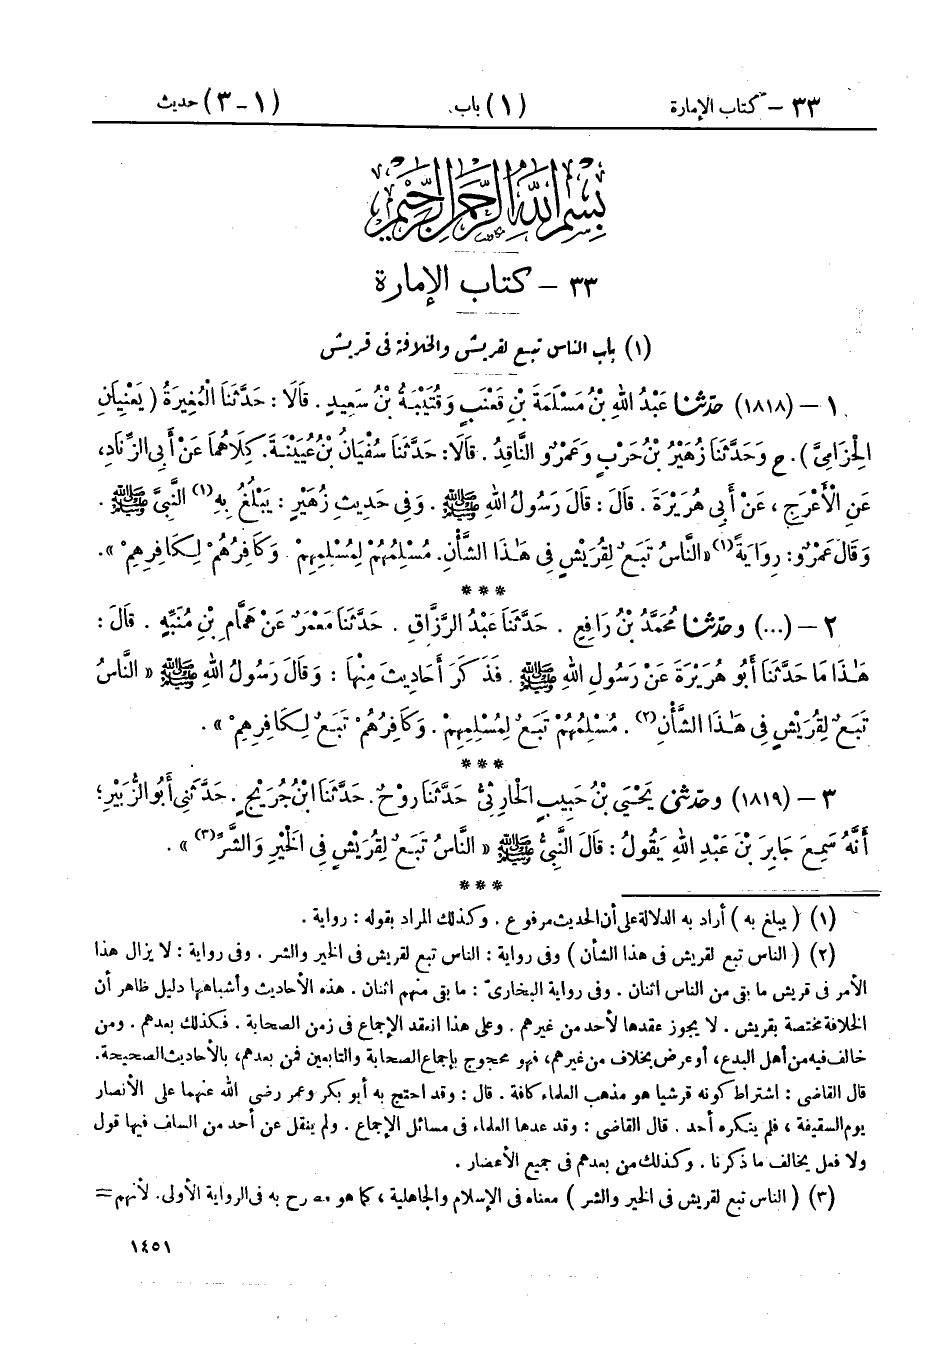 ٣٣ – كتاب الإمارة (١) باب. (١ – ٣) حديث
بسم الله الرحمن الرحيم
٣٣ – كتاب الإمارة
(١) باب الناس تبع لقريش والخلافة فى قريش
١ – (١٨١٨) حَدَّثَنَا عَبْدُ اللهِ بْنُ مَسْلَمَةَ بْنِ قَعْنَبٍ وَقُتَيْبَةُ بْنُ سَعِيدٍ . قَالَا : حَدَّثَنَا الْمُغِيرَةُ ( يَعْنِيَانِ
الْحِزَامِيَّ ) . ح وَحَدَّثَنَا زُهَيْرُ بْنُ حَرْبٍ وَعَمْرٌو النَّاقِدُ . قَالَا: حَدَّثَنَا سُفْيَانُ بْنُ عُيَيْنَةَ. كِلَاهُمَا عَنْ أَبِي الزِّنَادِ،
عَنِ الْأَعْرَجِ ، عَنْ أَبِي هُرَيْرَةَ . قَالَ : قَالَ رَسُولُ اللهِ ﷺ . وَفِي حَدِيثِ زُهَيْرٍ : يَبْلُغُ بِهِ(١) النَّبِيَّ ﷺ .
وَقَالَ عَمْرٌو: رِوَايَةً(١) «النَّاسُ تَبَعٌ لِقُرَيْشٍ فِي هَٰذَا الشَّأْنِ. مُسْلِمُهُمْ لِمُسْلِمِهِمْ . وَكَافِرُهُمْ لِكَافِرِهِمْ».
***
٢ – (...) وحَدَّثَنَا مُحَمَّدُ بْنُ رَافِعٍ . حَدَّثَنَا عَبْدُ الرَّزَّاقِ . حَدَّثَنَا مَعْمَرٌ عَنْ هَمَّامِ بْنِ مُنَبِّهٍ . قَالَ :
هَٰذَا مَا حَدَّثَنَا أَبُو هُرَيْرَةَ عَنْ رَسُولِ اللهِ ﷺ . فَذَكَرَ أَحَادِيثَ مِنْهَا : وَقَالَ رَسُولُ اللهِ ﷺ « النَّاسُ
تَبَعٌ لِقُرَيْشٍ فِي هَٰذَا الشَّأْنِ(٢) . مُسْلِمُهُمْ تَبَعٌ لِمُسْلِمِهِمْ . وَكَافِرُهُمْ تَبَعٌ لِكَافِرِهِمْ » .
***
٣ – (١٨١٩) وحَدَّثَنِي يَحْيَى بْنُ حَبِيبٍ الْحَارِثِيُّ حَدَّثَنَا رَوْحٌ. حَدَّثَنَا ابْنُ جُرَيْجٍ . حَدَّثَنِي أَبُو الزُّبَيْرِ ؛
أَنَّهُ سَمِعَ جَابِرَ بْنَ عَبْدِ اللهِ يَقُولُ : قَالَ النَّبِيُّ ﷺ « النَّاسُ تَبَعٌ لِقُرَيْشٍ فِي الْخَيْرِ وَالشَّرِّ(٣) » .
***
(١) ( يبلغ به ) أراد به الدلالة على أن الحديث مرفوع . وكذلك المراد بقوله : رواية .
(٢) ( الناس تبع لقريش فى هذا الشأن ) وفى رواية : الناس تبع لقريش فى الخير والشر . وفى رواية : لا يزال هذا
الأمر فى قريش ما بقى من الناس اثنان . وفى رواية البخارىّ : ما بقى منهم اثنان . هذه الأحاديث وأشباهها دليل ظاهر أن
الخلافة مختصة بقريش . لا يجوز عقدها لأحد من غيرهم . وعلى هذا انعقد الإجماع فى زمن الصحابة . فكذلك بعدهم . ومن
خالف فيه من أهل البدع، أو عرض بخلاف من غيرهم، فهو محجوج بإجماع الصحابة والتابعين فمن بعدهم، بالأحاديث الصحيحة.
قال القاضى : اشتراط كونه قرشيا هو مذهب العلماء كافة . قال : وقد احتج به أبو بكر وعمر رضى الله عنهما على الأنصار
يوم السقيفة ، فلم ينكره أحد . قال القاضى : وقد عدها العلماء فى مسائل الإجماع . ولم ينقل عن أحد من السلف فيها قول
ولا فعل يخالف ما ذكرنا . وكذلك من بعدهم فى جميع الأعصار .
(٣) ( الناس تبع لقريش فى الخير والشر ) معناه فى الإسلام والجاهلية ، كما هو مصرح به فى الرواية الأولى. لأنهم =
١٤٥١